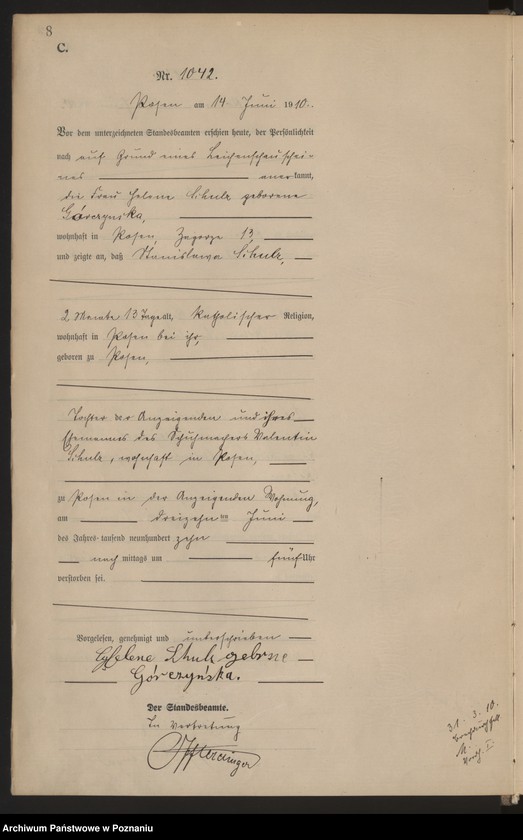 8
C.
Nr. 1042.
Posen am 14 Juni 1910.
Vor dem unterzeichneten Standesbeamten erschien heute, der Persönlichkeit
nach auf Grund eines Leichenschauschei-
nes anerkannt,
die Frau Helene Schulz geborene
Górczynska,
wohnhaft in Posen, Zagorze 13,
und zeigte an, daß Stanislawa Schulz,
2 Monate 13 Tage alt, katholischer Religion,
wohnhaft in Posen bei ihr,
geboren zu Posen,
Tochter der Anzeigenden und ihres
Ehemannes des Schuhmachers Valentin
Schulz, wohnhaft in Posen,
zu Posen in der Anzeigenden Wohnung,
am dreizehnten Juni
des Jahres tausend neunhundert zehn
nach mittags um fünf Uhr
verstorben sei.
Vorgelesen, genehmigt und unterschrieben
Helene Schulz geborne
Górczyńska.
Der Standesbeamte.
In Vertretung
31. 3. 10.
Archiwum Państwowe w Poznaniu